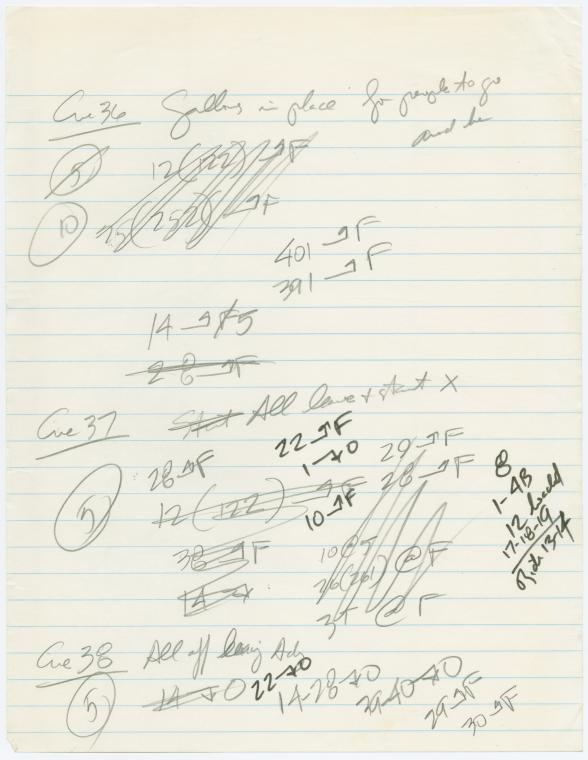 Cue 36 in place for people to go
and be
5 12 (122) → F
10 (252) → F
401 → F
391 → F
14 → F5
28 → F
Cue 37 Start All leave + start X
22 → F 29 → F
28 → F 1 → 0 28 → F
5 12 (122) → F 10 → F
38 → F 10 @ F
14 26 (261) @ F
3 @ F
8
1-4B
12
17-18-19
13-14
Cue 38 All off leaving
5 14 → 0 22 → 0 14-28 → 0 39-40 → 0
29 → F
30 → F